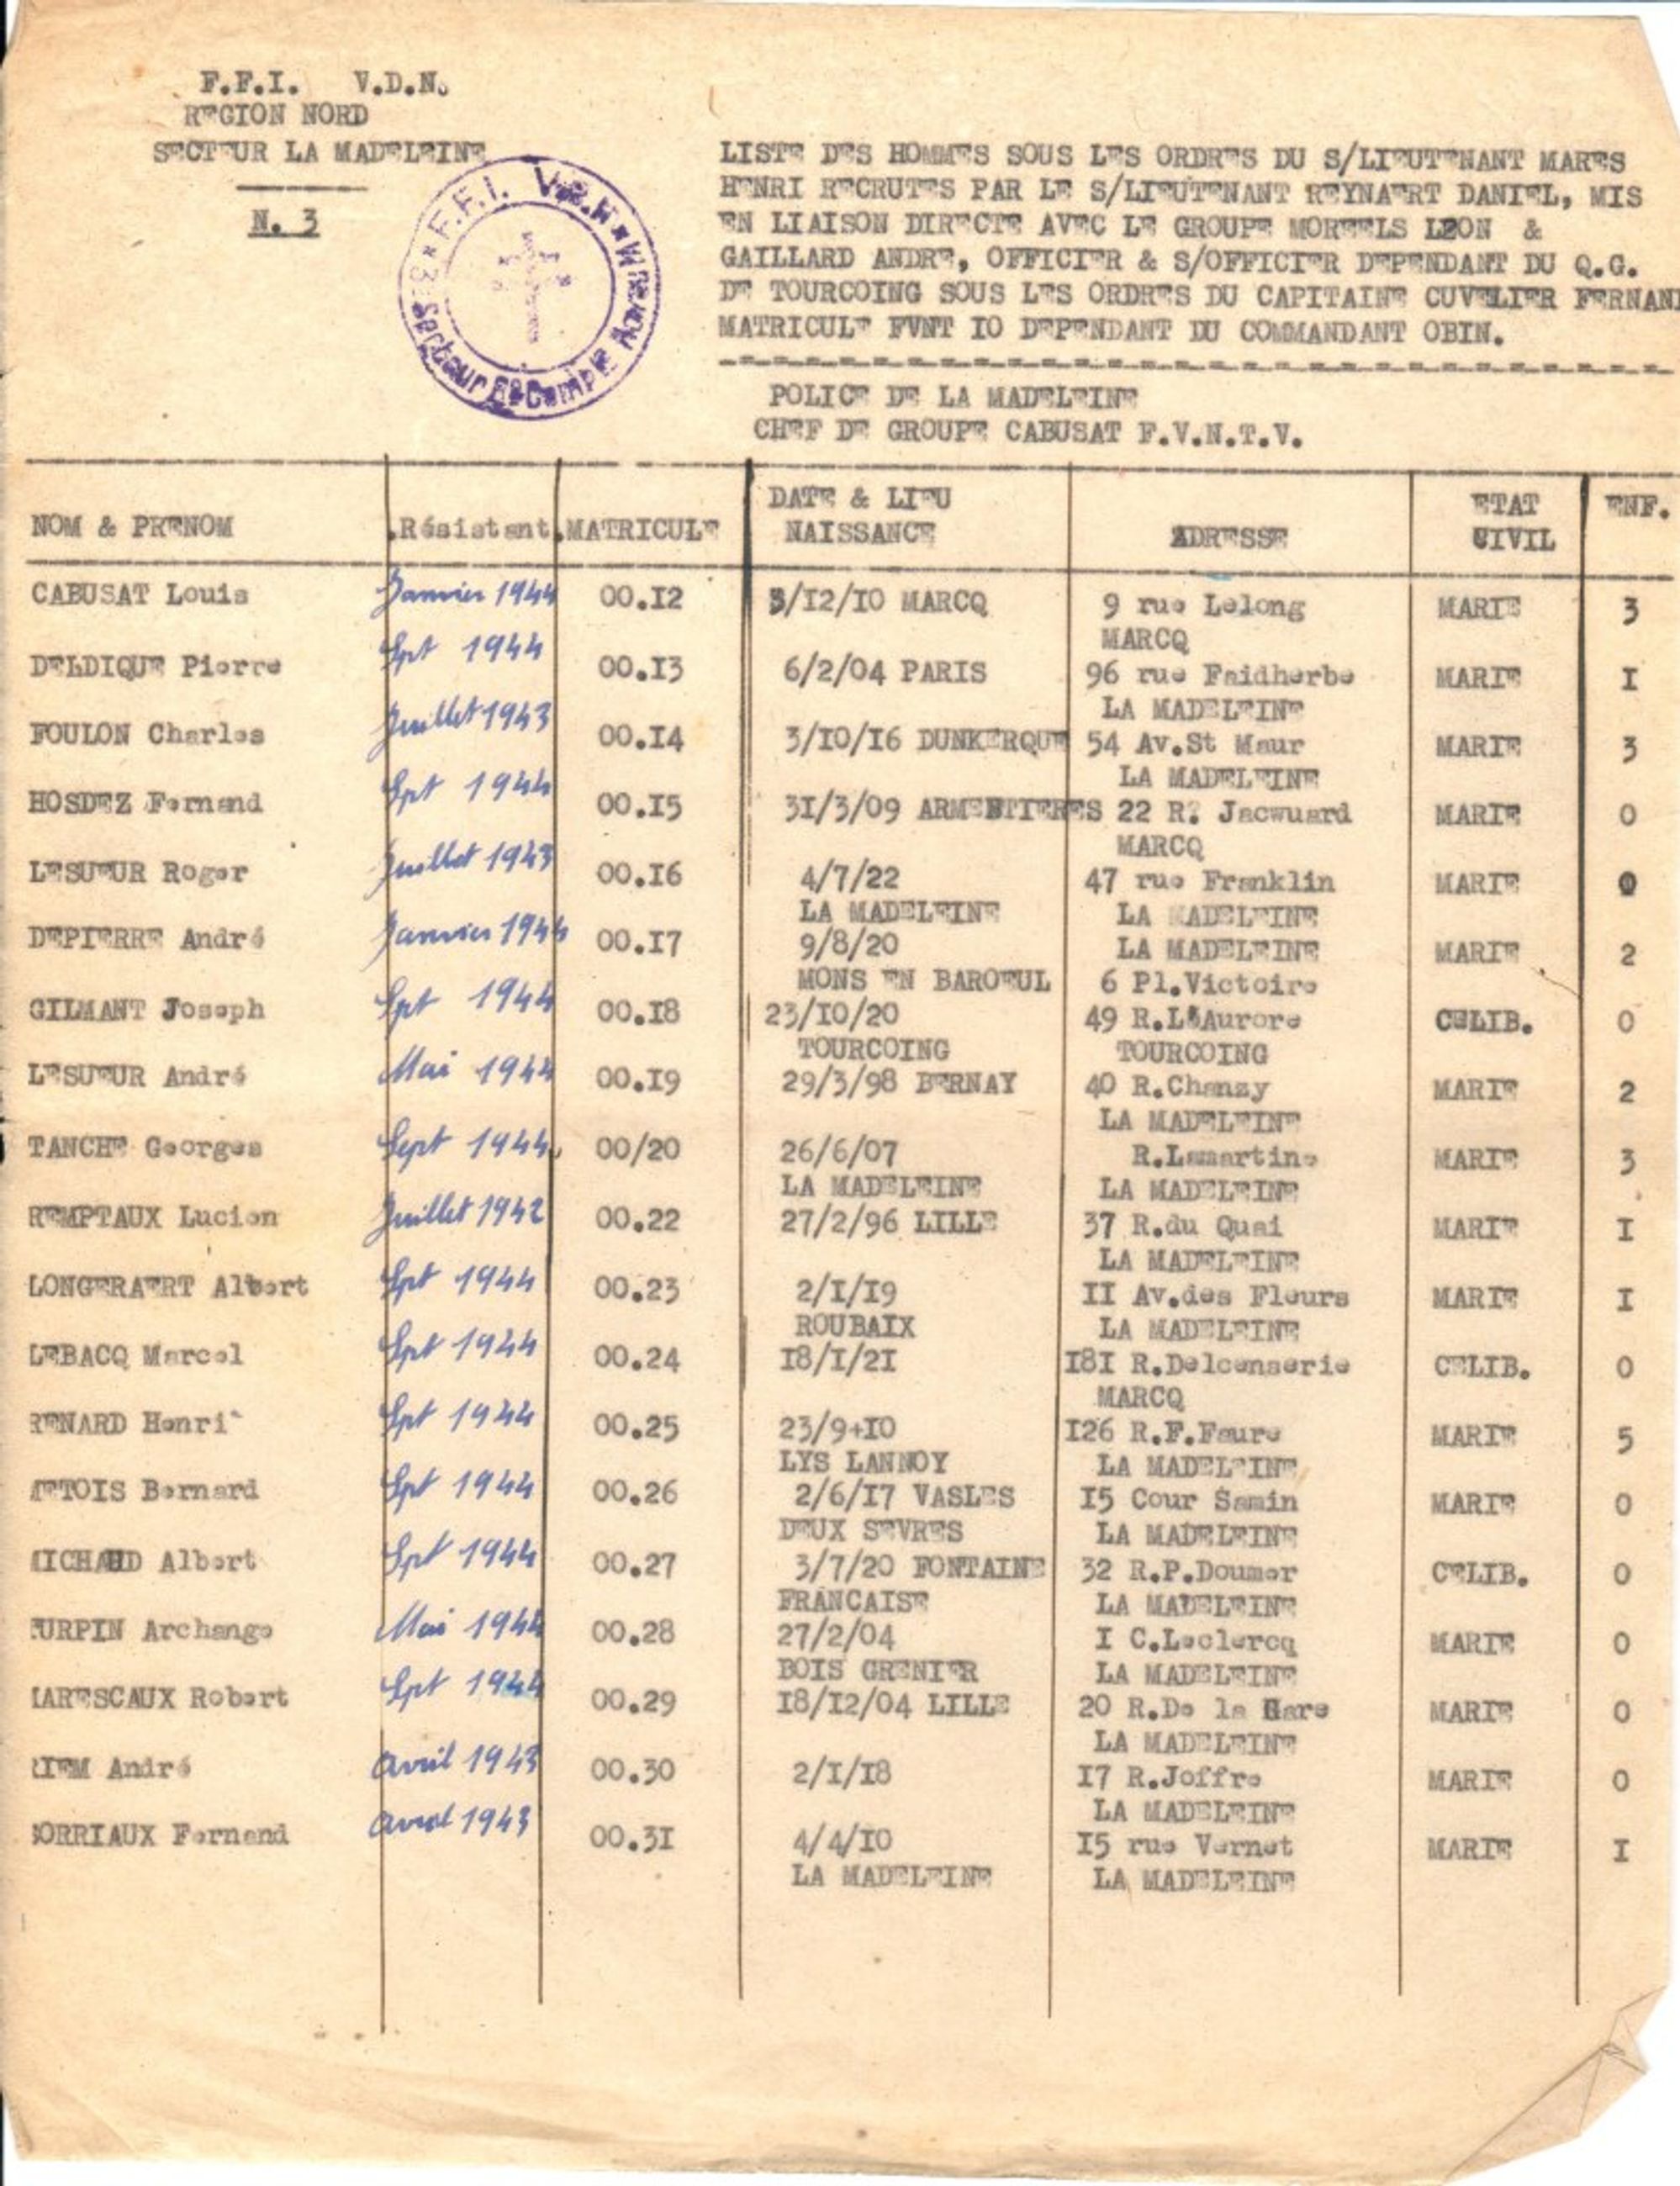 F.F.I. V.D.N.
REGION NORD
SECTEUR LA MADELEINE
N. 3
F.F.I. V.D.N.
LISTE DES HOMMES SOUS LES ORDRES DU S/LIEUTENANT MARES
HENRI RECRUTES PAR LE S/LIEUTENANT REYNAERT DANIEL, MIS
EN LIAISON DIRECTE AVEC LE GROUPE MOREELS LEON &
GAILLARD ANDRE, OFFICIER & S/OFFICIER DEPENDANT DU Q.G.
DE TOURCOING SOUS LES ORDRES DU CAPITAINE CUVELIER FERNAN
MATRICULE FVNT IO DEPENDANT DU COMMANDANT OBIN.
POLICE DE LA MADELEINE
CHEF DE GROUPE CABUSAT F.V.N.T.V.
NOM & PRENOM Résistant. MATRICULE DATE & LIEU NAISSANCE ADRESSE ETAT CIVIL ENF.
CABUSAT Louis Janvier 1944 00.I2 3/I2/IO MARCQ 9 rue Lelong MARIE 3
MARCQ
DELDIQUE Pierre Spt 1944 00.I3 6/2/04 PARIS 96 rue Faidherbe MARIE I
LA MADELEINE
FOULON Charles Juillet 1943 00.I4 3/IO/I6 DUNKERQUE 54 Av.St Maur MARIE 3
LA MADELEINE
HOSDEZ Fernand Spt 1944 00.I5 3I/3/09 ARMENTIERES 22 R. Jacwuard MARIE 0
MARCQ
LESUEUR Roger Juillet 1943 00.I6 4/7/22 47 rue Franklin MARIE 0
LA MADELEINE LA MADELEINE
DEPIERRE André Janvier 1944 00.I7 9/8/20 LA MADELEINE MARIE 2
MONS EN BAROEUL 6 Pl.Victoire
GILMANT Joseph Spt 1944 00.I8 23/IO/20 49 R.L'Aurore CELIB. 0
TOURCOING TOURCOING
LESUEUR André Mai 1944 00.I9 29/3/98 BERNAY 40 R.Chanzy MARIE 2
LA MADELEINE
TANCHE Georges Sept 1944 00/20 26/6/07 R.Lamartine MARIE 3
LA MADELEINE LA MADELEINE
REMPTAUX Lucien Juillet 1942 00.22 27/2/96 LILLE 37 R.du Quai MARIE I
LA MADELEINE
LONGERAERT Albert Spt 1944 00.23 2/I/I9 II Av.des Fleurs MARIE I
ROUBAIX LA MADELEINE
LEBACQ Marcel Spt 1944 00.24 I8/I/2I I8I R.Delcenserie CELIB. 0
MARCQ
RENARD Henri Spt 1944 00.25 23/9+IO I26 R.F.Faure MARIE 5
LYS LANNOY LA MADELEINE
ETOIS Bernard Spt 1944 00.26 2/6/I7 VASLES I5 Cour Samin MARIE 0
DEUX SEVRES LA MADELEINE
MICHAUD Albert Spt 1944 00.27 3/7/20 FONTAINE 32 R.P.Doumer CELIB. 0
FRANCAISE LA MADELEINE
URPIN Archange Mai 1944 00.28 27/2/04 I C.Leclercq MARIE 0
BOIS GRENIER LA MADELEINE
ARESCAUX Robert Spt 1944 00.29 I8/I2/04 LILLE 20 R.De la Gare MARIE 0
LA MADELEINE
RIEM André Avril 1943 00.30 2/I/I8 I7 R.Joffre MARIE 0
LA MADELEINE
ORRIAUX Fernand Avril 1943 00.3I 4/4/IO I5 rue Vernet MARIE I
LA MADELEINE LA MADELEINE